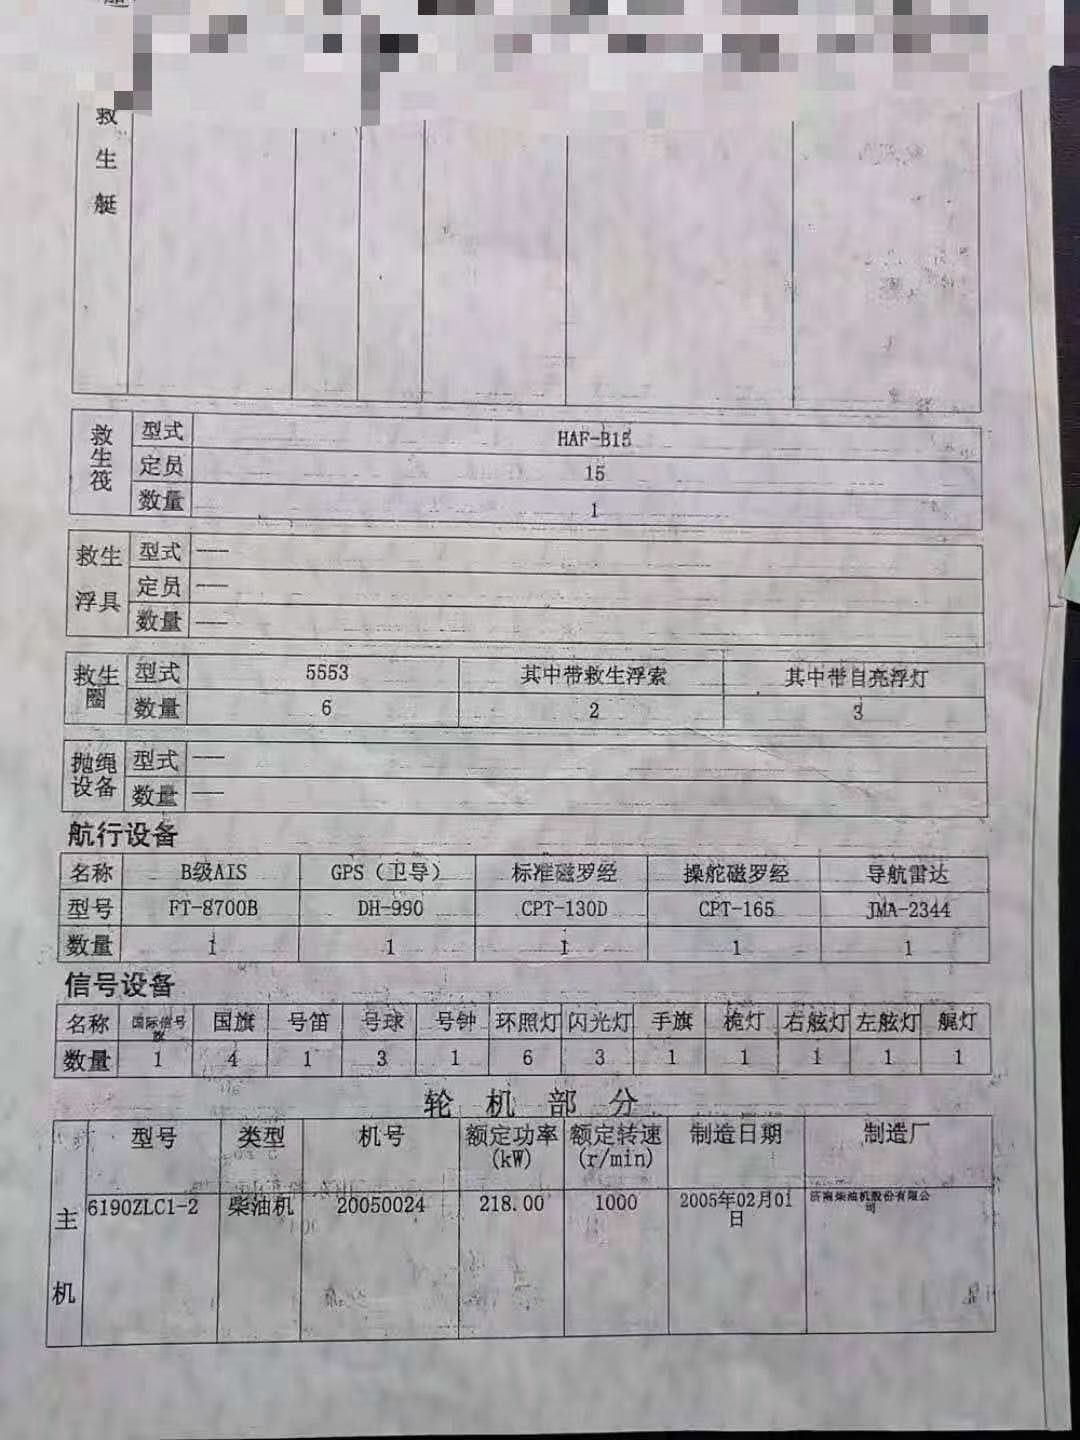 救生艇
救生筏 型式 HAF-B15
定员 15
数量 1
救生浮具 型式 ----
定员 ----
数量 ----
救生圈 型式 5553 其中带救生浮索 其中带自亮浮灯
数量 6 2 3
抛绳设备 型式 ----
数量 ----
航行设备
名称 B级AIS GPS（卫导） 标准磁罗经 操舵磁罗经 导航雷达
型号 FT-8700B DH-990 CPT-130D CPT-165 JMA-2344
数量 1 1 1 1 1
信号设备
名称 国际信号旗 国旗 号笛 号球 号钟 环照灯 闪光灯 手旗 桅灯 右舷灯 左舷灯 艉灯
数量 1 4 1 3 1 6 3 1 1 1 1 1
轮机部分
型号 类型 机号 额定功率(kW) 额定转速(r/min) 制造日期 制造厂
主机 6190ZLC1-2 柴油机 20050024 218.00 1000 2005年02月01日 济南柴油机股份有限公司